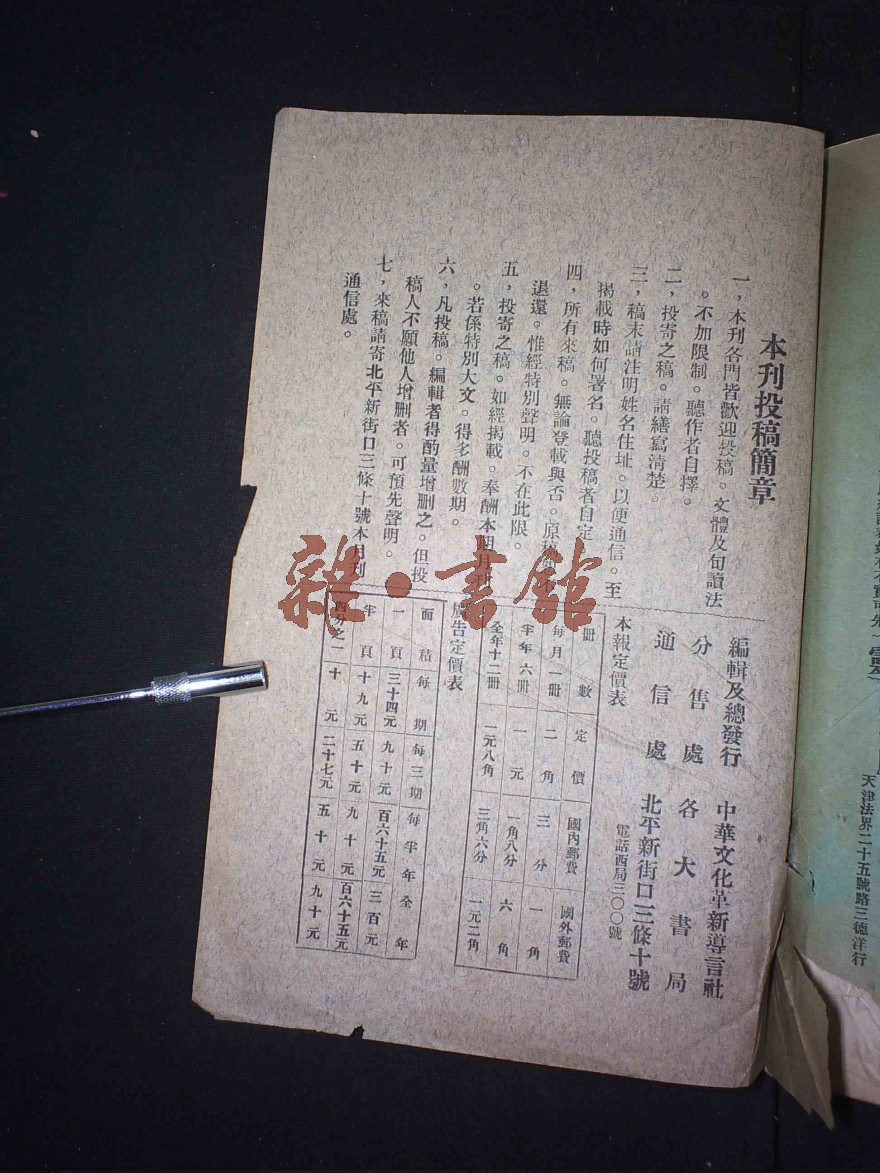 本刊投稿簡章
一，本刊各門皆歡迎投稿。文體及句讀法
。不加限制。聽作者自擇。
二，投寄之稿。請繕寫清楚。
三，稿末請注明姓名住址。以便通信。至
揭載時如何署名。聽投稿者自定
四，所有來稿。無論登載與否。原稿
退還。惟經特別聲明。不在此限。
五，投寄之稿。如經揭載。奉酬本期月刊
。若係特別大文。得多酬數期。
六，凡投稿。編輯者得酌量增刪之。但投
稿人不願他人增刪者。可預先聲明。
七，來稿請寄北平新街口三條十號本月刊
通信處。
編輯及總發行 中華文化革新導言社
分售處 各大書局
通信處 北平新街口三條十號
電話西局三〇〇號
本報定價表
冊數 定價 國內郵費 國外郵費
每月一冊 二角 三分 一角
半年六冊 一元 一角八分 六角
全年十二冊 一元八角 三角六分 一元二角
廣告定價表
面積 每期 每三期 每半年 全年
一頁 三十四元 九十元 百六十五元 三百元
半頁 十九元 五十元 九十元 百六十五元
四分之一 十元 二十七元 五十元 九十元
雜·書館
天津法界二十五號路三德洋行